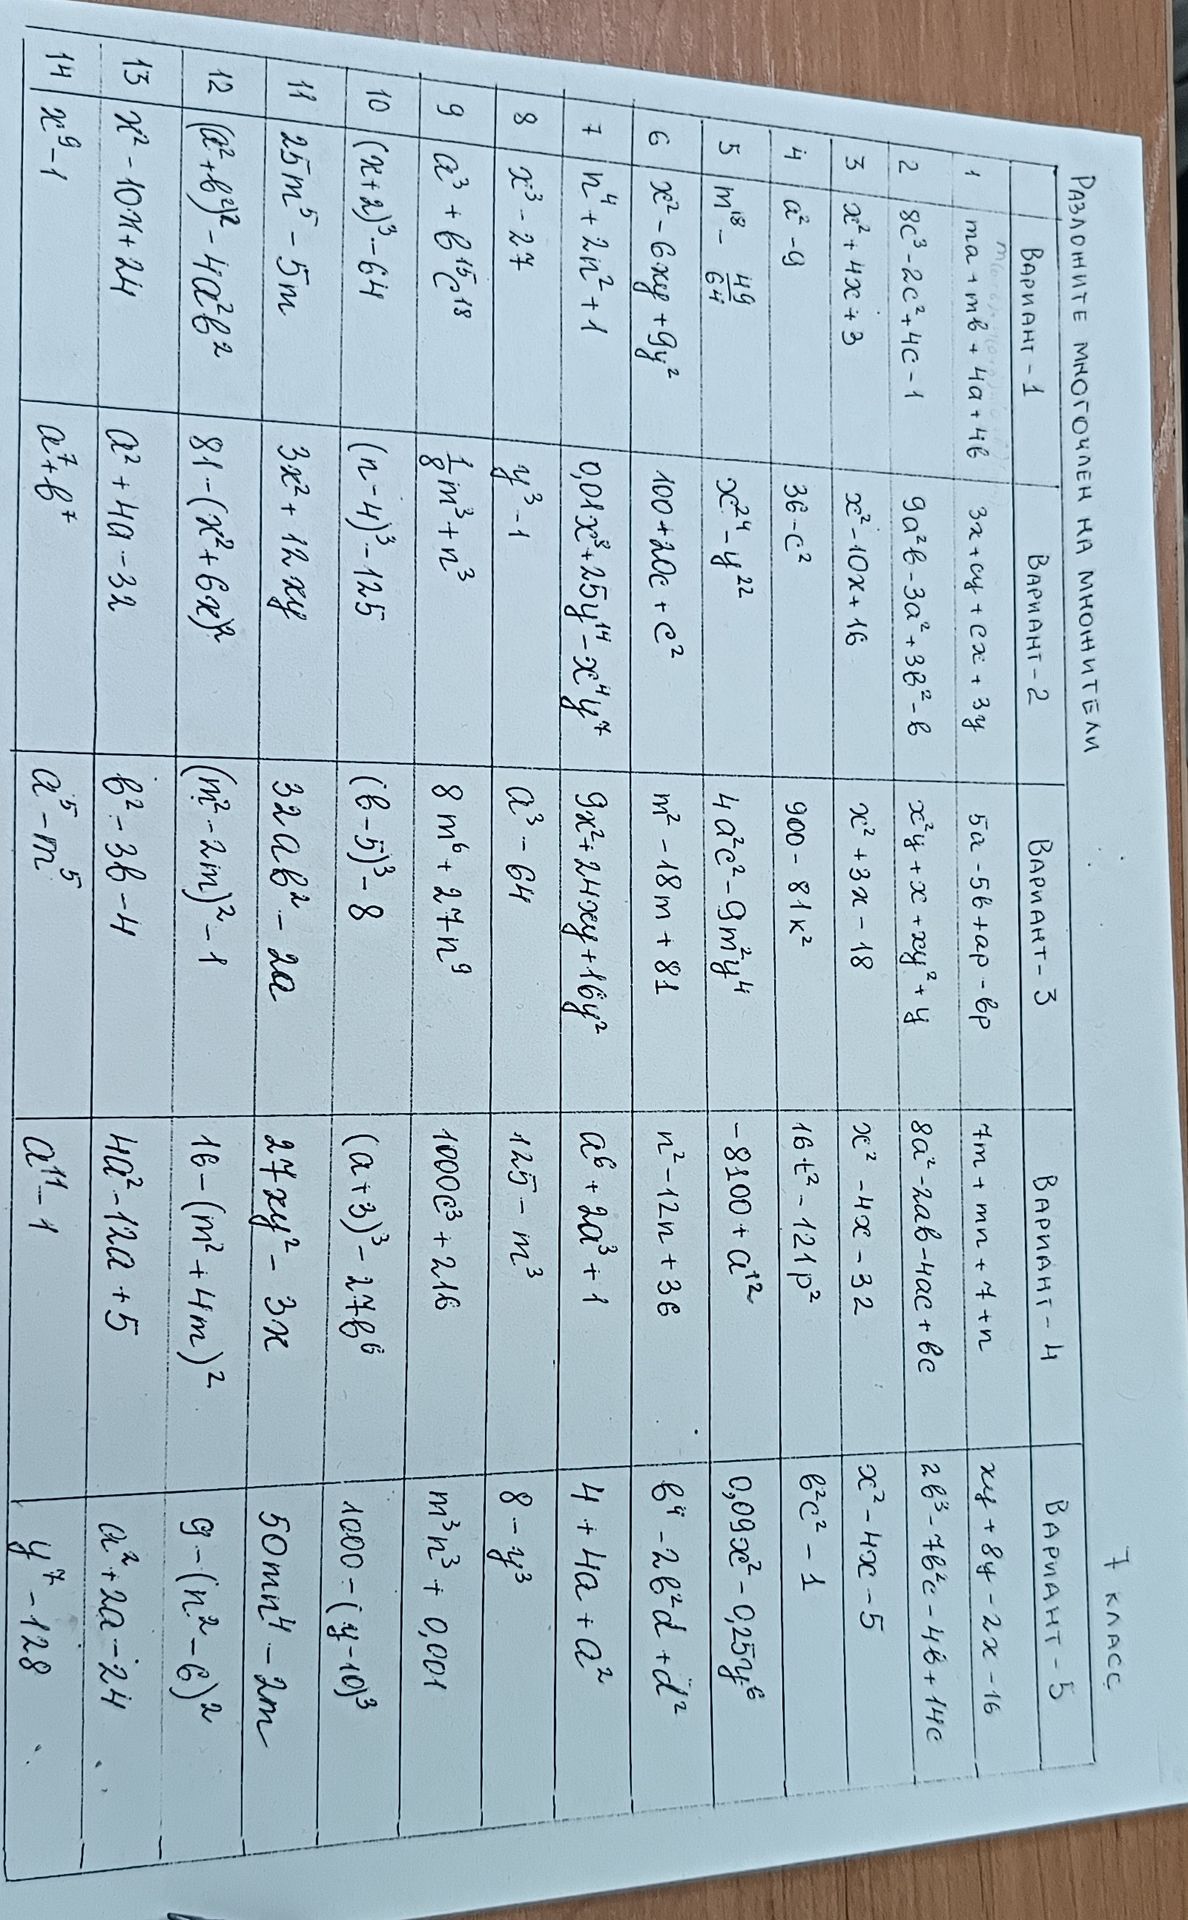 7 КЛАСС
РАЗЛОЖИТЕ МНОГОЧЛЕН НА МНОЖИТЕЛИ
ВАРИАНТ - 1 ВАРИАНТ - 2 ВАРИАНТ - 3 ВАРИАНТ - 4 ВАРИАНТ - 5
1 ma + mb + 4a + 4b 3x + cy + cx + 3y 5a - 5b + ap - bp 7m + mn + 7 + n xy + 8y - 2x - 16
2 8c³ - 2c² + 4c - 1 9a²b - 3a² + 3b² - b x²y + x + xy² + y 8a² - 2ab - 4ac + bc 2b³ - 7b²c - 4b + 14c
3 x² + 4x + 3 x² - 10x + 16 x² + 3x - 18 x² - 4x - 32 x² - 4x - 5
4 a² - 9 36 - c² 900 - 81k² 16t² - 121p² b²c² - 1
5 m¹⁸ - 49/64 x²⁴ - y²² 4a²c² - 9m²y⁴ -8100 + a¹² 0,09x² - 0,25y⁶
6 x² - 6xy + 9y² 100 + 20c + c² m² - 18m + 81 n² - 12n + 36 b⁴ - 2b²d + d²
7 n⁴ + 2n² + 1 0,01x⁸ + 25y¹⁴ - x⁴y⁷ 9x² + 24xy + 16y² a⁶ + 2a³ + 1 4 + 4a + a²
8 x³ - 27 y³ - 1 a³ - 64 125 - m³ 8 - y³
9 a³ + b¹⁵c¹⁸ 1/8 m³ + n³ 8m⁶ + 27n⁹ 1000c³ + 216 m³n³ + 0,001
10 (x+2)³ - 64 (n-4)³ - 125 (b-5)³ - 8 (a+3)³ - 27b⁶ 1000 - (y-10)³
11 25m⁵ - 5m 3x² + 12xy 32ab² - 2a 27xy² - 3x 50mn⁴ - 2m
12 (a²+b²)² - 4a²b² 81 - (x²+6x)² (m²-2m)² - 1 16 - (m²+4m)² 9 - (n²-6)²
13 x² - 10x + 24 a² + 4a - 32 b² - 3b - 4 4a² - 12a + 5 a² + 2a - 24
14 x⁹ - 1 a⁷ + b⁷ a⁵ - m⁵ a¹¹ - 1 y⁷ - 128